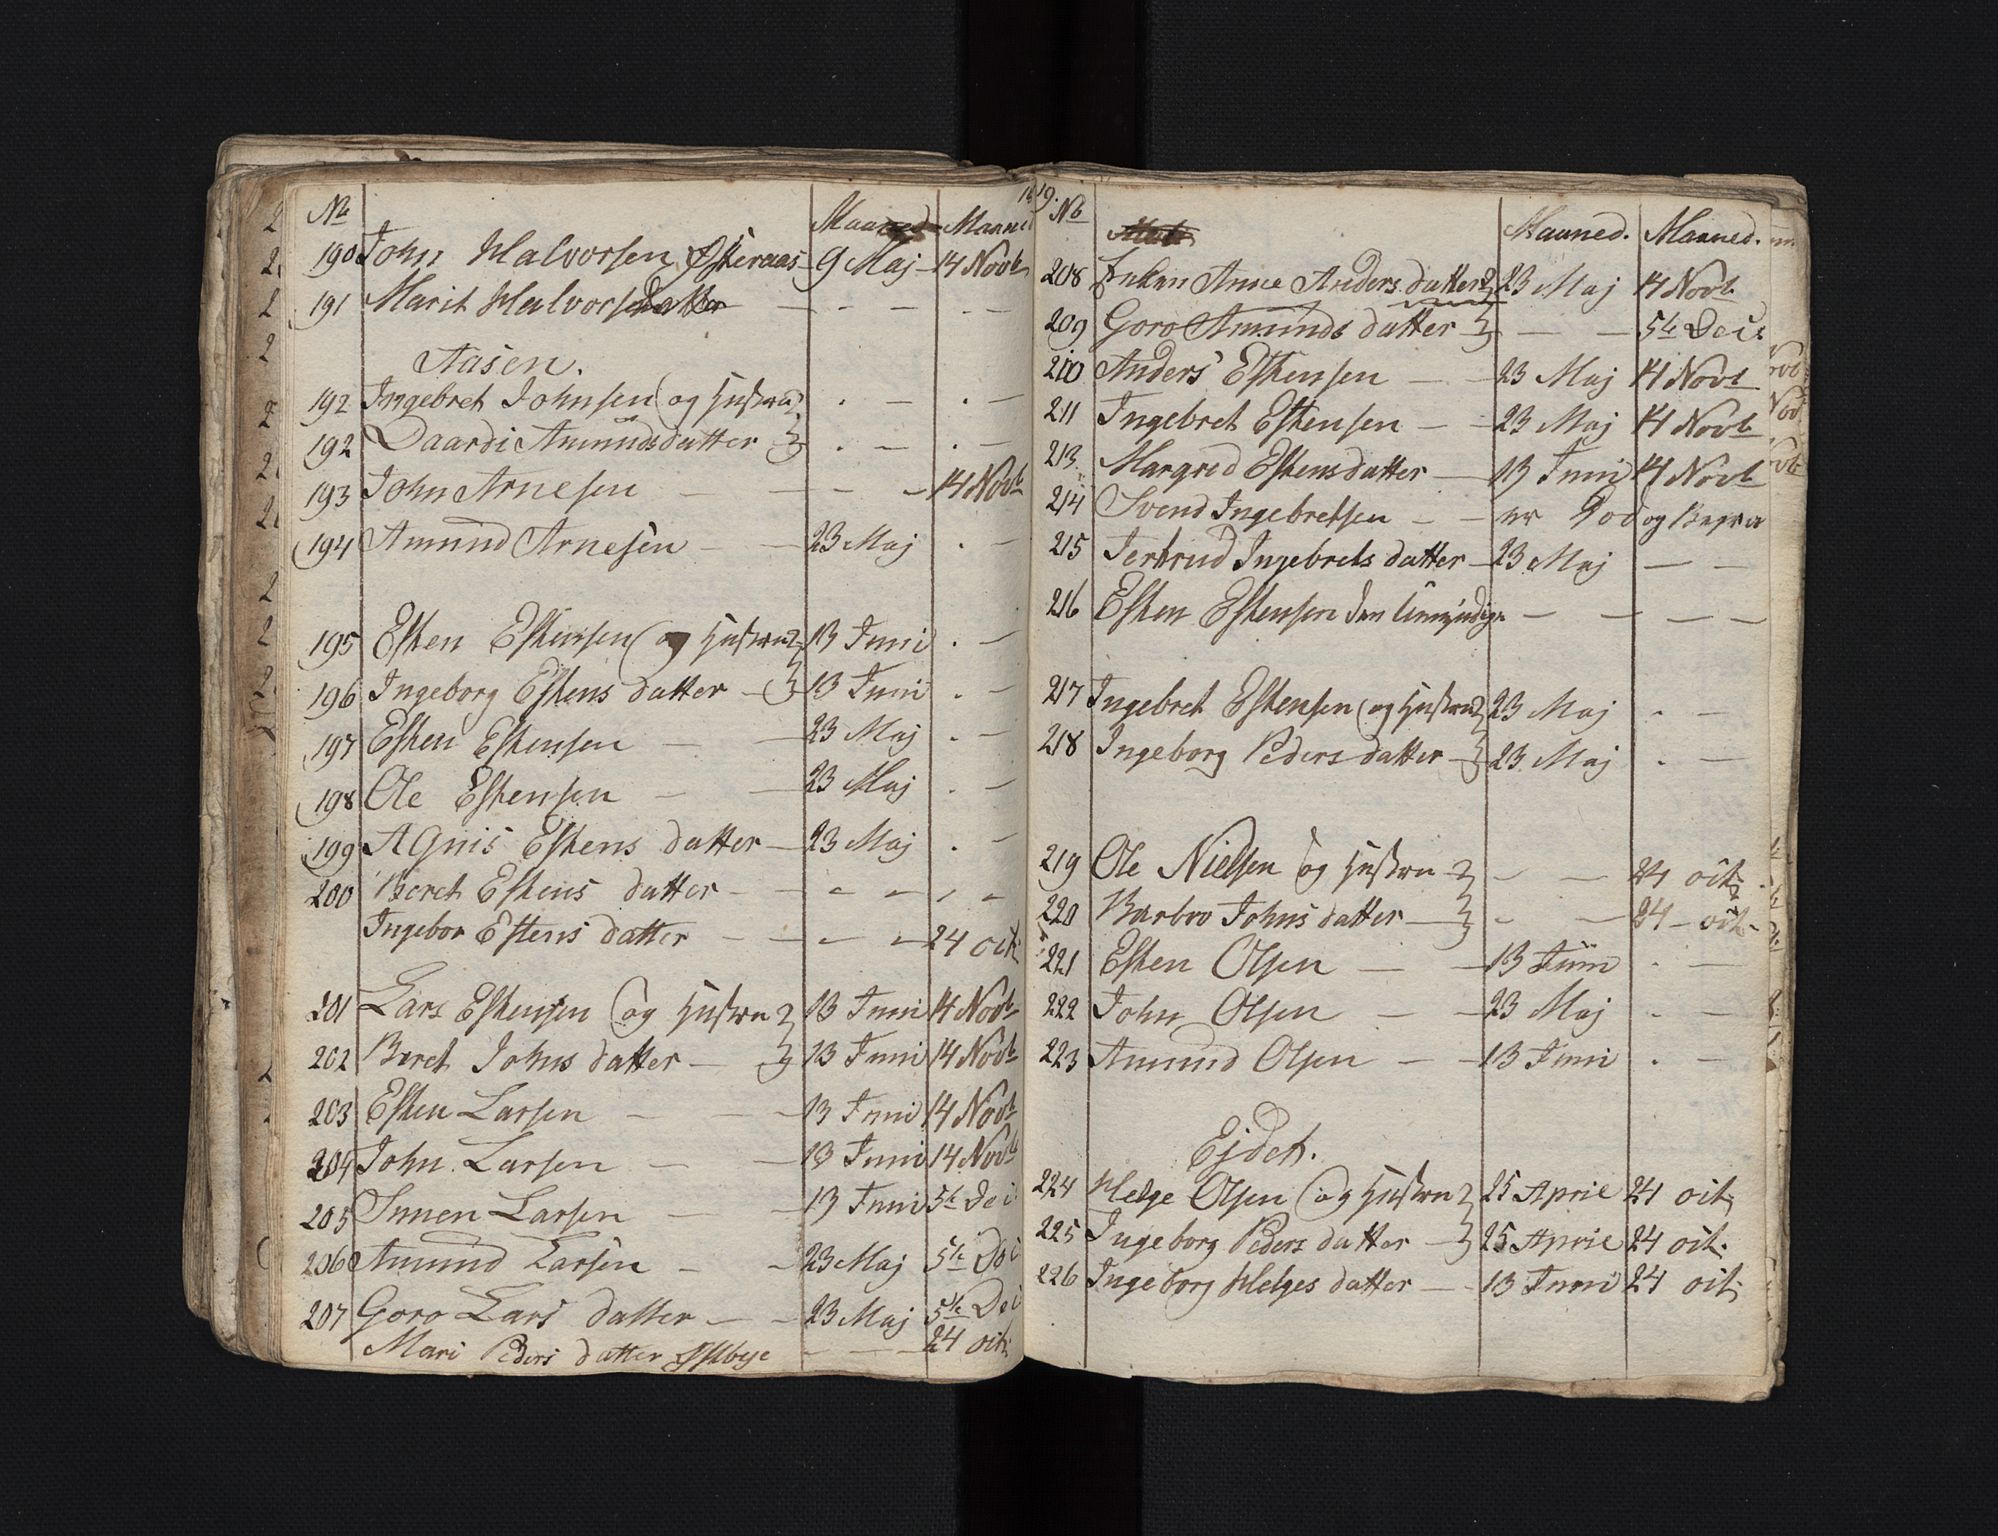 No Maaned Maaned
190 John Halvorsen Østeraas 9 Maj 14 Novb
191 Marit Halvorsdatter — - — - - —
Aasen.
192 Ingebret Johnsen (og Hustru - — - —
192 Baardi Amundsdatter - — - —
193 John Arnesen — — — — 14 Novb
194 Amund Arnesen — — 23 Maj - —
195 Esten Estensen (og Hustru 13 Juni - —
196 Ingeborg Estens datter — 13 Juni - —
197 Esten Estensen — — 23 Maj - —
198 Ole Estensen — — 23 Maj - —
199 Agnis Estens datter — 23 Maj - —
200 Beret Estens datter — — - — - -
Ingebor Estens datter — — — — 24 oct
201 Lars Estensen (og Hustru 13 Juni 14 Novb
202 Beret Johns datter — 13 Juni 14 Novb
203 Esten Larsen — — — 13 Juni 14 Novb
204 John Larsen — — 13 Juni 14 Novb
205 Simen Larsen — — 13 Juni 5te Dec
206 Amund Larsen — — 23 Maj 5te Dec
207 Goro Lars datter — — 23 Maj 5te Dec
Mari Peders datter Østbye — — — 24 oct
19.
No Maaned. Maaned.
208 Anne Anders datter 23 Maj 14 Novb
209 Goro Amunds datter — — 5te Dec
210 Anders Estensen — — 23 Maj 14 Novb
211 Ingebret Estensen — — 23 Maj 14 Novb
213 Margred Estensdatter — 13 Juni 14 Novb
214 Svend Ingebretsen — — er Død og Begra
215 Jertrud Ingebrets datter — 23 Maj — —
216 Esten Estensen den Umyndige — — — —
217 Ingebret Estensen (og Hustru 23 Maj - —
218 Ingeborg Peders datter — 23 Maj - —
219 Ole Nielsen (og Hustru — — 24 oct
220 Barbro Johns datter — - — 24 — oct
221 Esten Olsen — — 13 Juni - —
222 John Olsen — — 23 Maj - —
223 Amund Olsen — — 13 Juni - —
Ejdet.
224 Helge Olsen (og Hustru 25 April 24 oct
225 Ingeborg Peders datter — 25 April 24 oct.
226 Ingeborg Helges datter — — 13 Juni 24 oct